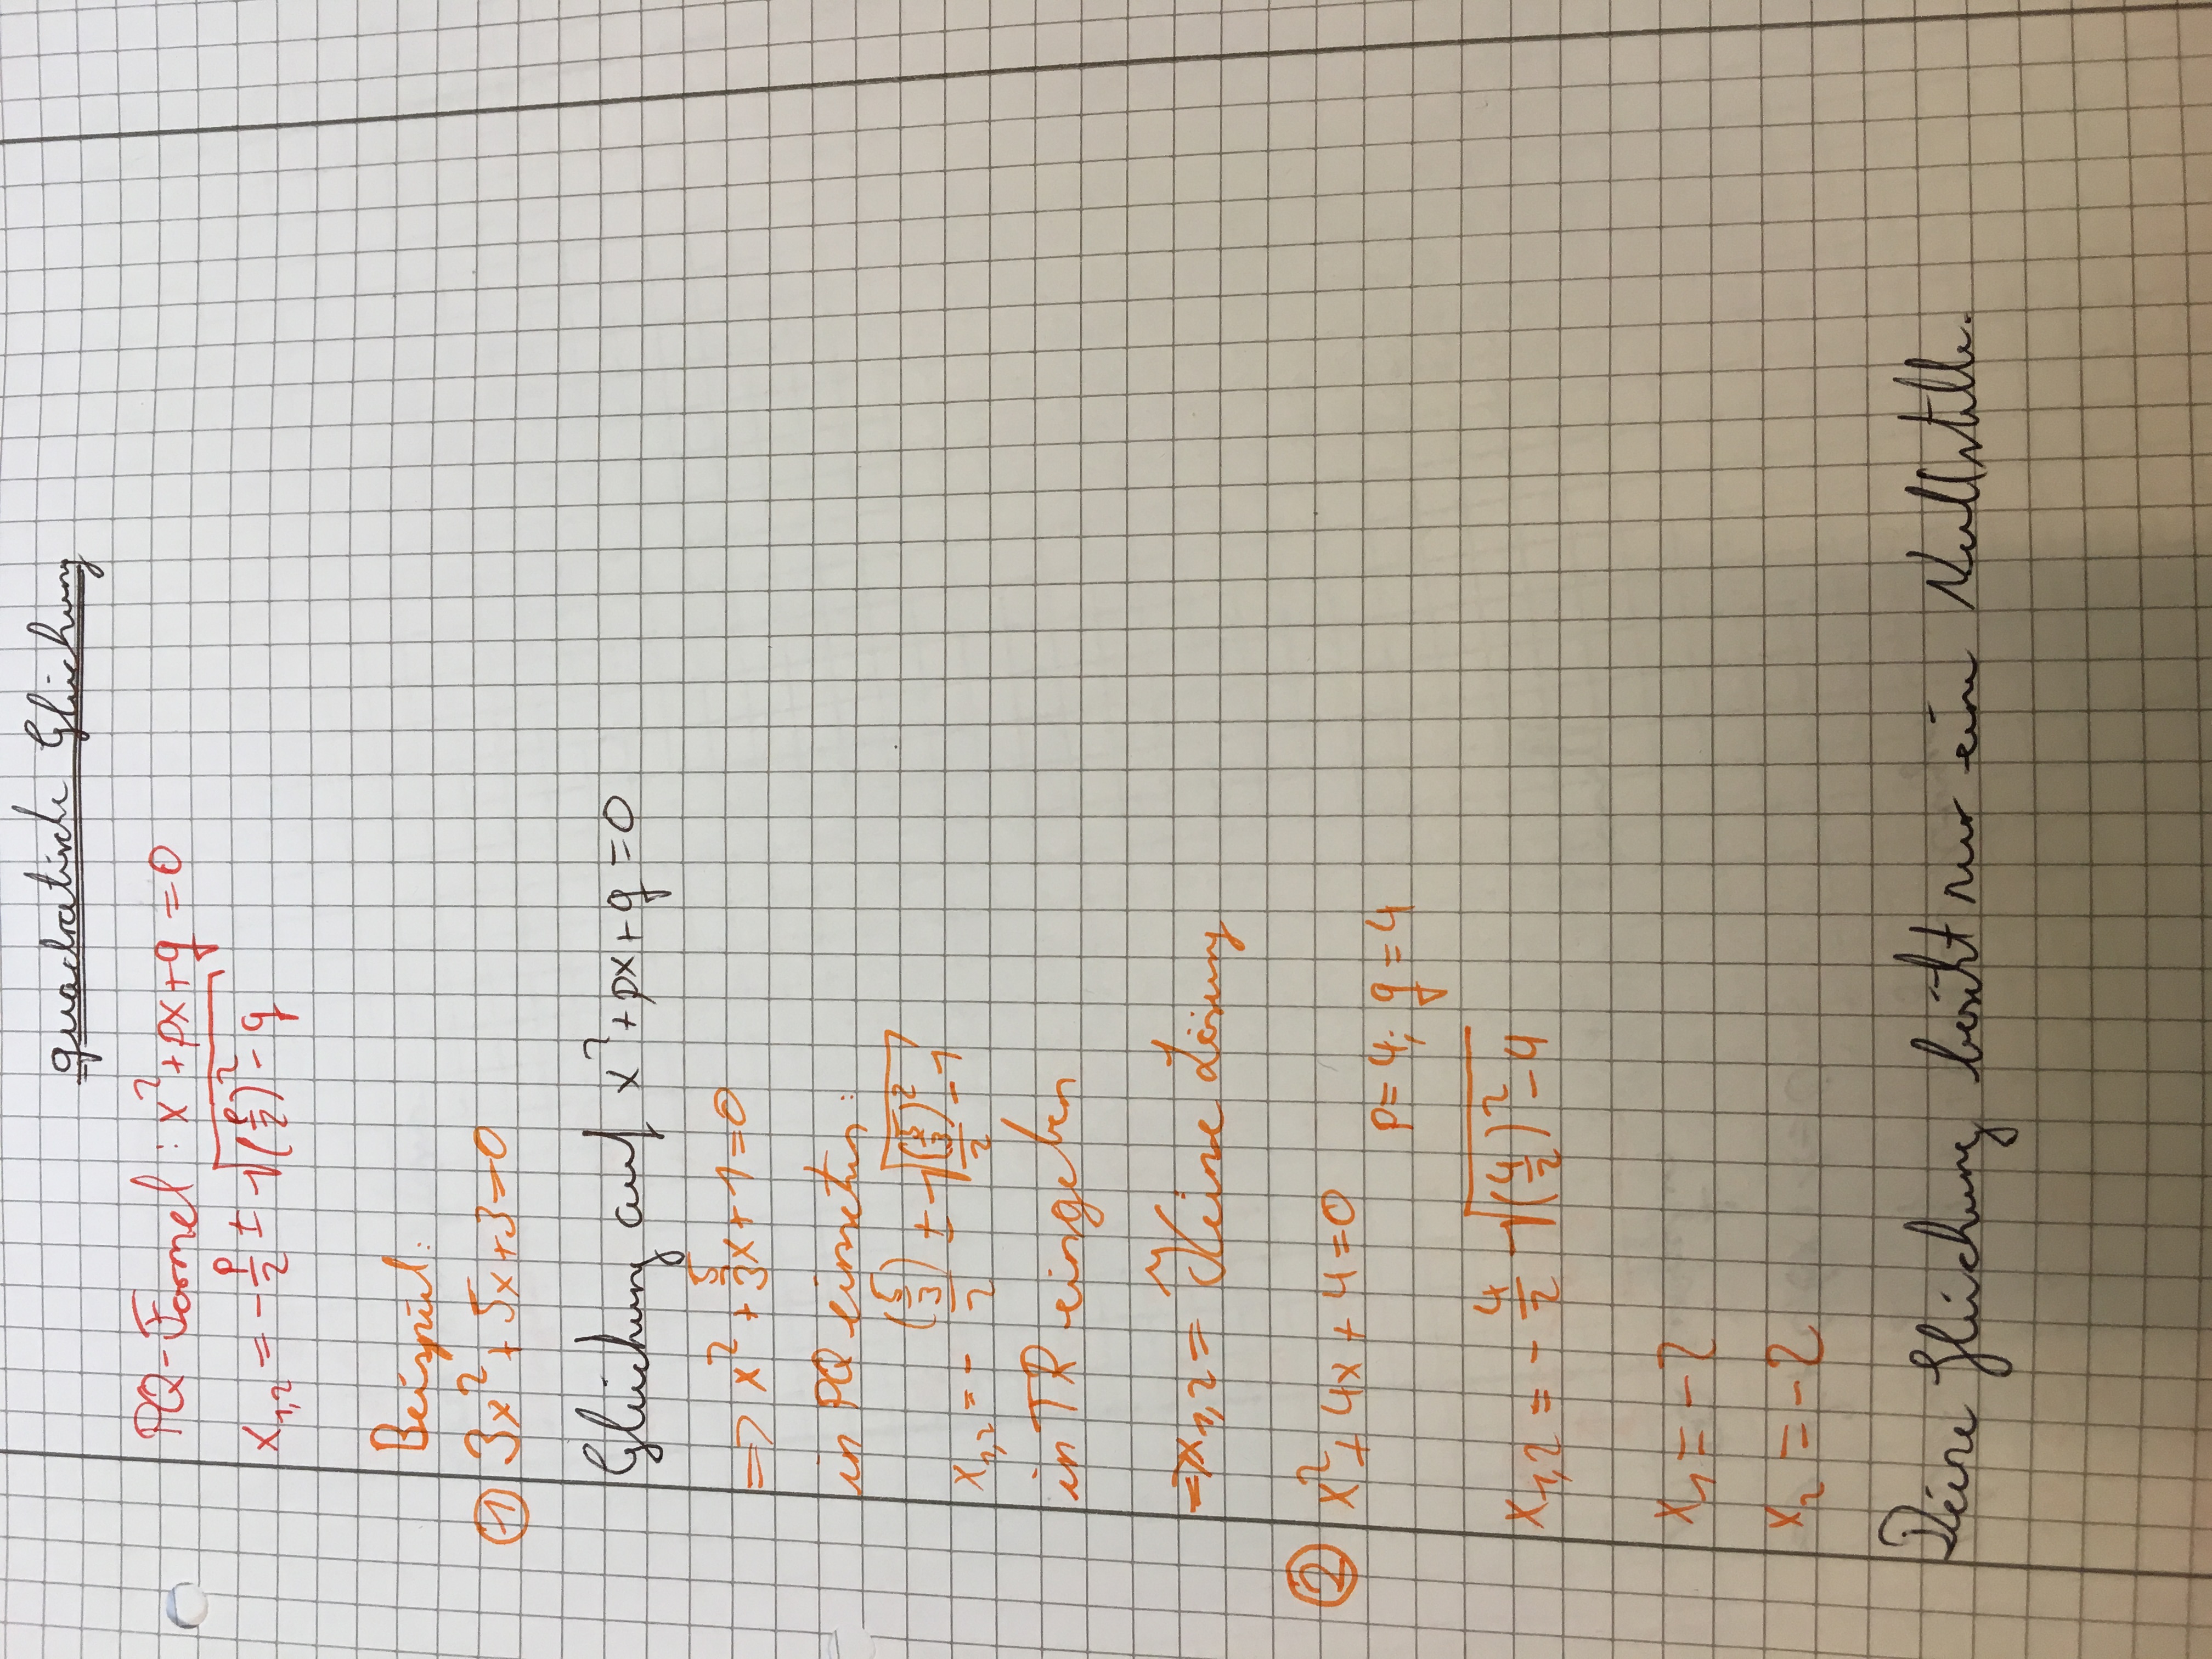 quadratische Gleichung
PQ-Formel: x²+px+q=0
x₁,₂ = -p/2 ± √((p/2)²-q)
Beispiel:
① 3x²+5x+3=0
Gleichung auf x²+px+q=0
=> x²+5/3x+1=0
in PQ einsetzen:
x₁,₂ = - (5/3)/2 ± √((5/3)/2)²-1
in TR eingeben
=> x₁,₂ = Keine Lösung
② x²+4x+4=0
p=4; q=4
x₁,₂ = -4/2 √((4/2)²-4)
x₁=-2
x₂=-2
Deine Gleichung besitzt nur eine Nullstelle.